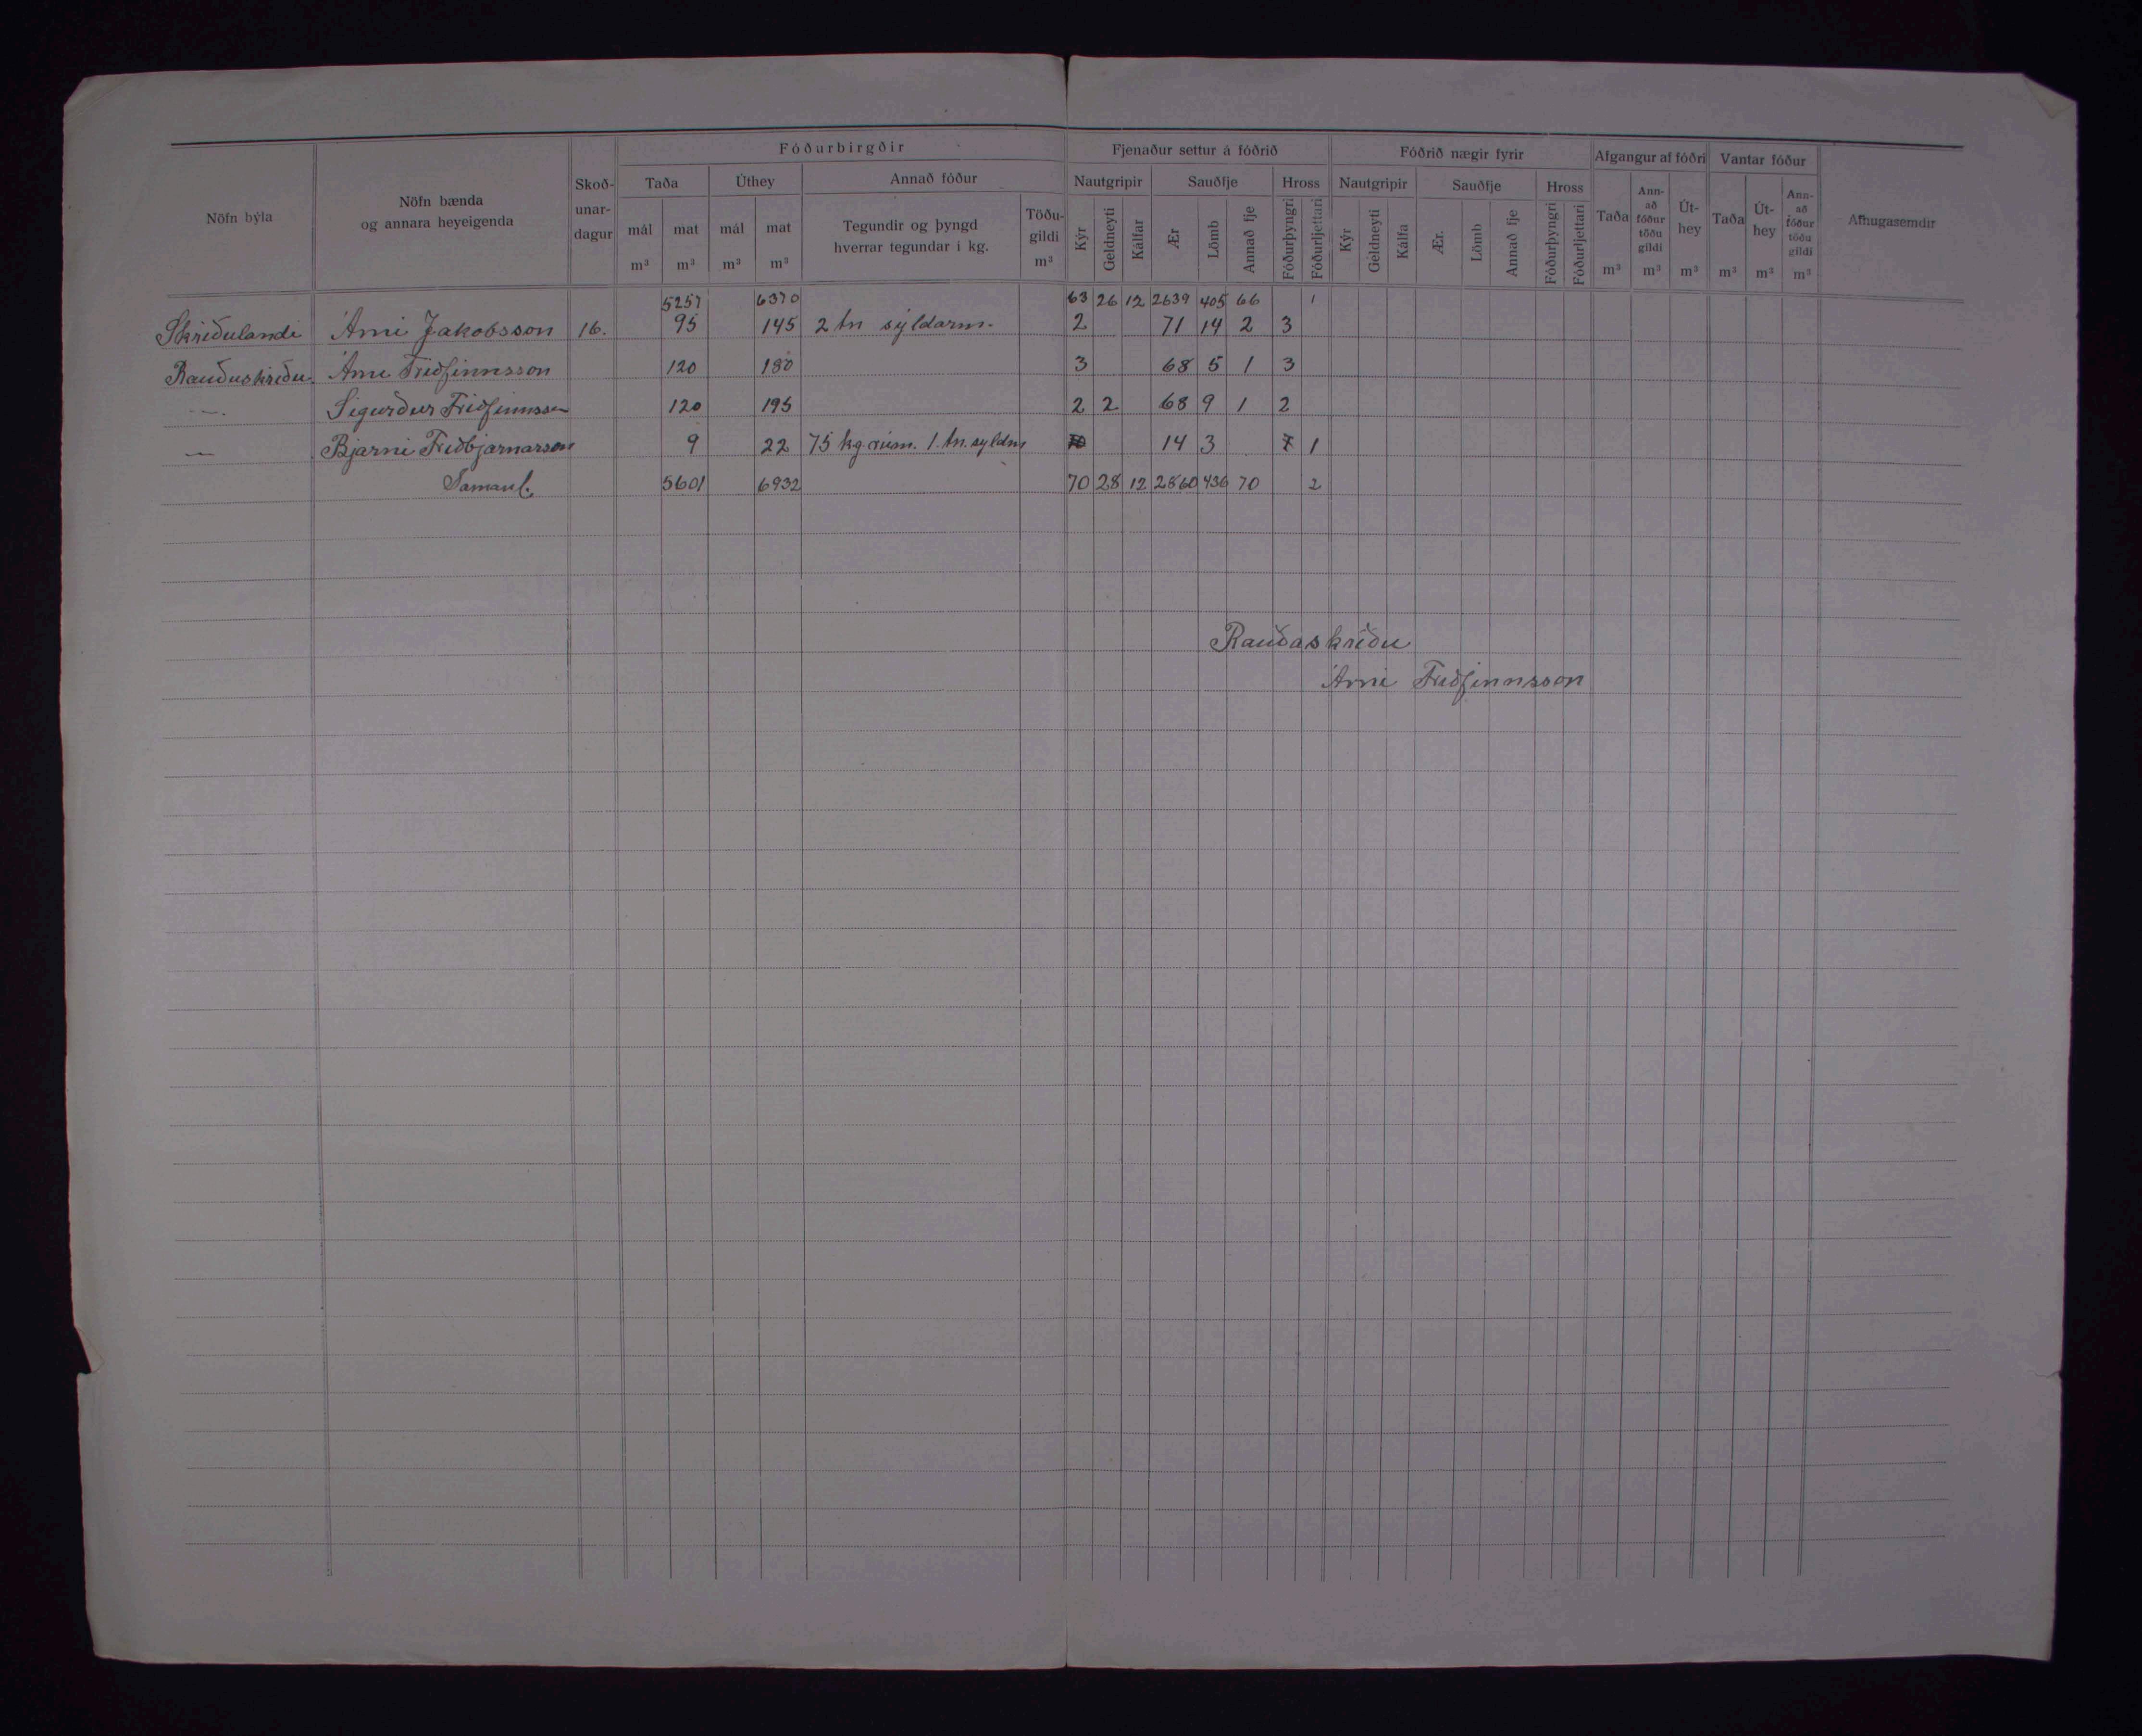 Fóðurbirgðir Fjenaður settur á fóðrið Fóðrið nægir fyrir Afgangur af fóðri Vantar fóður
Nöfn býla Nöfn bænda og annara heyeigenda Skoð-unar-dagur Taða Úthey Annað fóður Nautgripir Sauðfje Hross Nautgripir Sauðfje Hross Taða Ann-að fóður töðu gildi Út-hey Taða Út-hey Ann-að fóður töðu gildi Athugasemdir
mál mat mál mat Tegundir og þyngd hverrar tegundar í kg. Töðu-gildi Kýr Geldneyti Kálfar Ær Lömb Annað fje Fóðurþyngri Fóðurljettari Kýr Geldneyti Kálfa Ær. Lömb Annað fje Fóðurþyngri Fóðurljettari
m³ m³ m³ m³ m³ m³ m³ m³ m³ m³ m³
5257 6370 63 26 12 2639 405 66 1
Skriðulandi Árni Jakobsson 16. 95 145 2 tn síldarm. 2 71 14 2 3
Rauðuskriðu Árni Friðfinnsson 120 180 3 68 5 1 3
—„— Sigurður Friðfinnsson 120 195 2 2 68 9 1 2
—„— Bjarni Friðbjarnarson 9 22 75 kg. rúm. 1. tn. syldm 14 3 1
Samanl. 5601 6932 70 28 12 2860 436 70 2
Rauðaskriðu
Árni Friðfinnsson